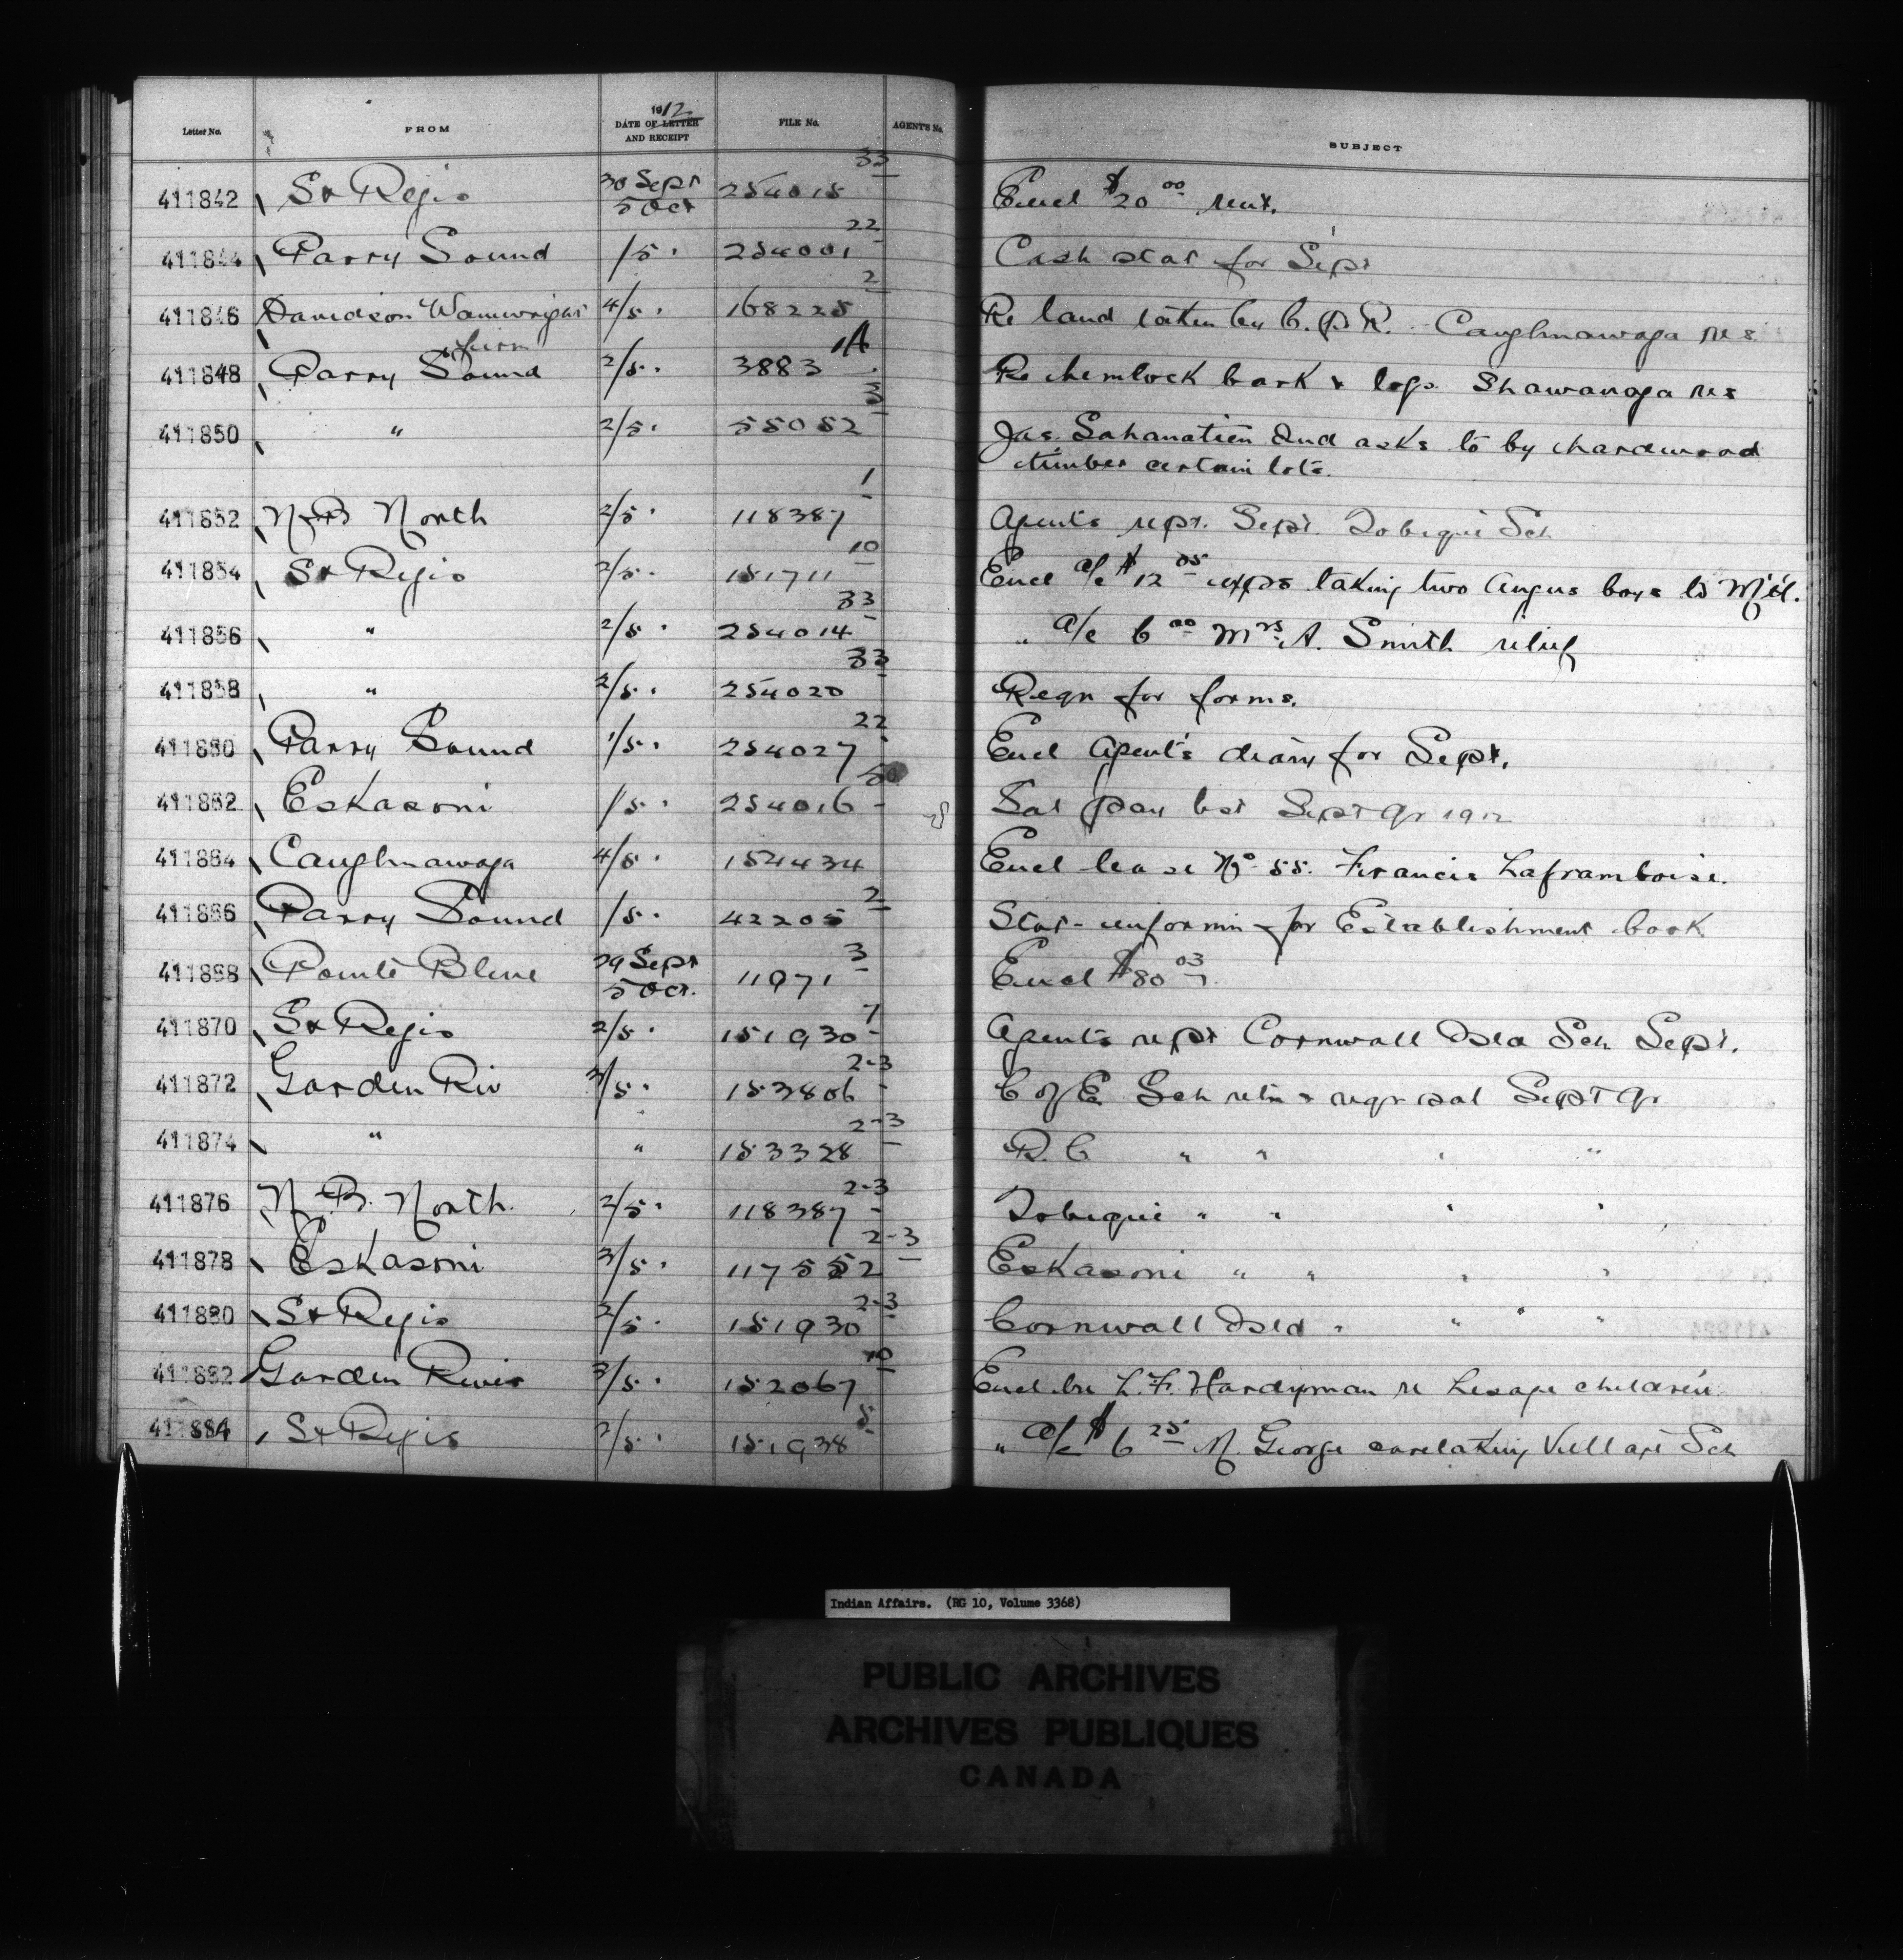 Letter No. FROM 1912 DATE OF LETTER AND RECEIPT FILE No. AGENT'S No. SUBJECT
411842 St Regis 30 Sept 5 Oct 254015 33 Encl $20 00 rent.
411844 Parry Sound 1/5 " 254001 22 Cash stat for Sept
411846 Davidson Wainwright 4/5 " 168225 2 Re land taken by C.P.R. Caughnawaga res.
411848 Parry Sound 2/5 " 3883 1A Re hemlock bark & logs Shawanaga res
411850 " 2/5 " 55052 3 Jas. Sahanatien Ind asks to by hardwood
timber certain lots.
411852 N.B. North 2/5 " 118387 1 Agents rept. Sept. Tobique Sch
411854 St Regis 2/5 " 151711 10 Encl a/c $12 05 exps taking two Angus boys to M't'l.
411856 " 2/5 " 254014 33 " a/c 6 00 Mrs A. Smith relief
411858 " 2/5 " 254020 33 Reqn for forms.
411860 Parry Sound 1/5 " 254027 22 Encl Agent's diary for Sept.
411862 Eskasoni 1/5 " 254016 50 Sal pay list Sept qr 1912
411864 Caughnawaga 4/5 " 154434 Encl lease No 55. Francis Laframboise.
411866 Parry Sound 1/5 " 42205 2 Stat- informn for Establishment book
411868 Pointe Bleue 29 Sept 5 Oct. 11971 3 Encl $80 03
411870 St Regis 2/5 " 151930 7 Agents rept Cornwall Isla Sch Sept.
411872 Garden Riv 3/5 " 153806 2-3 C of E. Sch retn & reqr sal Sept qr
411874 " " 153328 2-3 R.C " " " "
411876 N.B. North. 2/5 " 118387 2-3 Tobique " " " "
411878 Eskasoni 3/5 " 117552 2-3 Eskasoni " " " "
411880 St Regis 2/5 " 151930 2-3 Cornwall Isld " " "
411882 Garden River 3/5 " 152067 10 Encl lre L.F. Hardyman re Lesage children
411884 St Regis 2/5 " 151938 5 " a/c $6 25 M. George caretaking Village Sch
Indian Affairs. (RG 10, Volume 3368)
PUBLIC ARCHIVES
ARCHIVES PUBLIQUES
CANADA